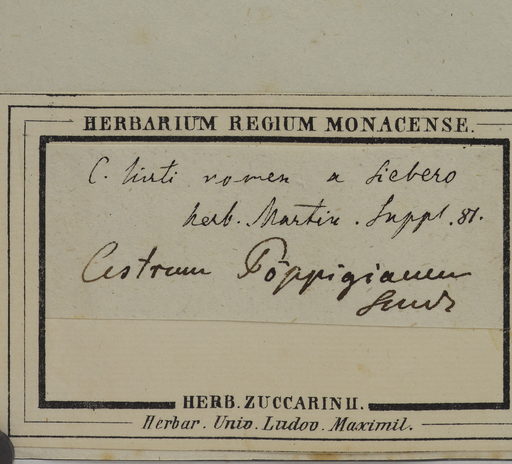 HERBARIUM REGIUM MONACENSE.
C. hirti nomen a Siebero
herb. Martin. Suppl. 81.
Cestrum Pöppigianum
Sendt
HERB. ZUCCARINII.
Herbar. Univ. Ludov. Maximil.